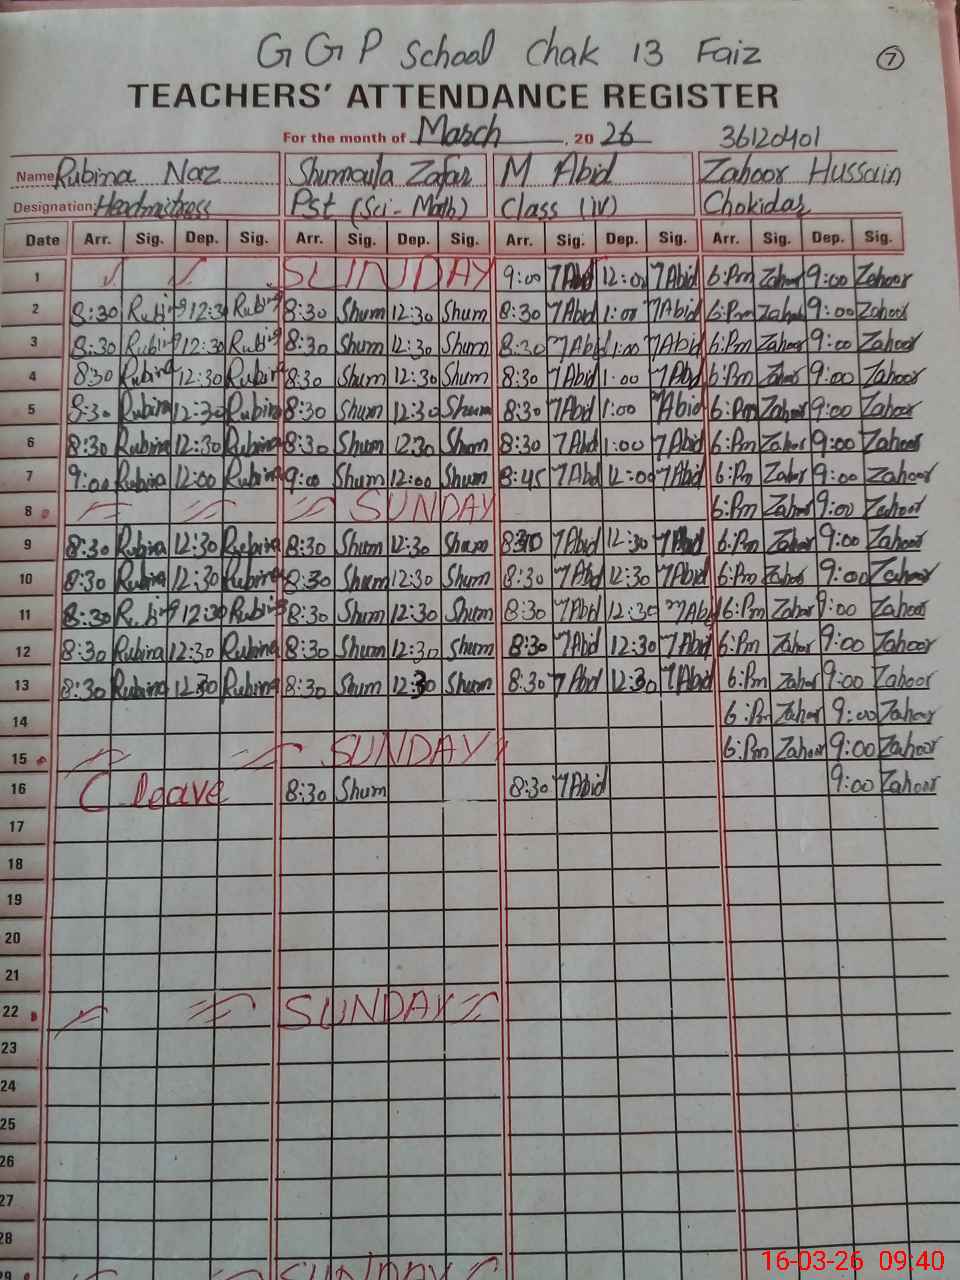 G G P School Chak 13 Faiz
7
TEACHERS' ATTENDANCE REGISTER
For the month of March, 20 26 36120401
Name Rubina Naz Shumaila Zafar M Abid Zahoor Hussain
Designation: Headmistress Pst (Sci-Math) Class (iv) Chokidar
Date Arr. Sig. Dep. Sig. Arr. Sig. Dep. Sig. Arr. Sig. Dep. Sig. Arr. Sig. Dep. Sig.
1 SUNDAY 9:00 Abid 12:00 Abid 6:Pm Zahoor 9:00 Zahoor
2 8:30 Rubina 12:30 Rubina 8:30 Shum 12:30 Shum 8:30 Abid 1:00 Abid 6:Pm Zahoor 9:00 Zahoor
3 8:30 Rubina 12:30 Rubina 8:30 Shum 12:30 Shum 8:30 Abid 1:00 Abid 6:Pm Zahoor 9:00 Zahoor
4 8:30 Rubina 12:30 Rubina 8:30 Shum 12:30 Shum 8:30 Abid 1:00 Abid 6:Pm Zahoor 9:00 Zahoor
5 8:30 Rubina 12:30 Rubina 8:30 Shum 12:30 Shum 8:30 Abid 1:00 Abid 6:Pm Zahoor 9:00 Zahoor
6 8:30 Rubina 12:30 Rubina 8:30 Shum 12:30 Shum 8:30 Abid 1:00 Abid 6:Pm Zahoor 9:00 Zahoor
7 9:00 Rubina 12:00 Rubina 9:00 Shum 12:00 Shum 8:45 Abid 12:00 Abid 6:Pm Zahoor 9:00 Zahoor
8 SUNDAY 6:Pm Zahoor 9:00 Zahoor
9 8:30 Rubina 12:30 Rubina 8:30 Shum 12:30 Shum 8:30 Abid 12:30 Abid 6:Pm Zahoor 9:00 Zahoor
10 8:30 Rubina 12:30 Rubina 8:30 Shum 12:30 Shum 8:30 Abid 12:30 Abid 6:Pm Zahoor 9:00 Zahoor
11 8:30 Rubina 12:30 Rubina 8:30 Shum 12:30 Shum 8:30 Abid 12:30 Abid 6:Pm Zahoor 9:00 Zahoor
12 8:30 Rubina 12:30 Rubina 8:30 Shum 12:30 Shum 8:30 Abid 12:30 Abid 6:Pm Zahoor 9:00 Zahoor
13 8:30 Rubina 12:30 Rubina 8:30 Shum 12:30 Shum 8:30 Abid 12:30 Abid 6:Pm Zahoor 9:00 Zahoor
14 6:Pm Zahoor 9:00 Zahoor
15 SUNDAY 6:Pm Zahoor 9:00 Zahoor
16 C leave 8:30 Shum 8:30 Abid 9:00 Zahoor
17
18
19
20
21
22 SUNDAY
23
24
25
26
27
28
29 SUNDAY
16-03-26 09:40